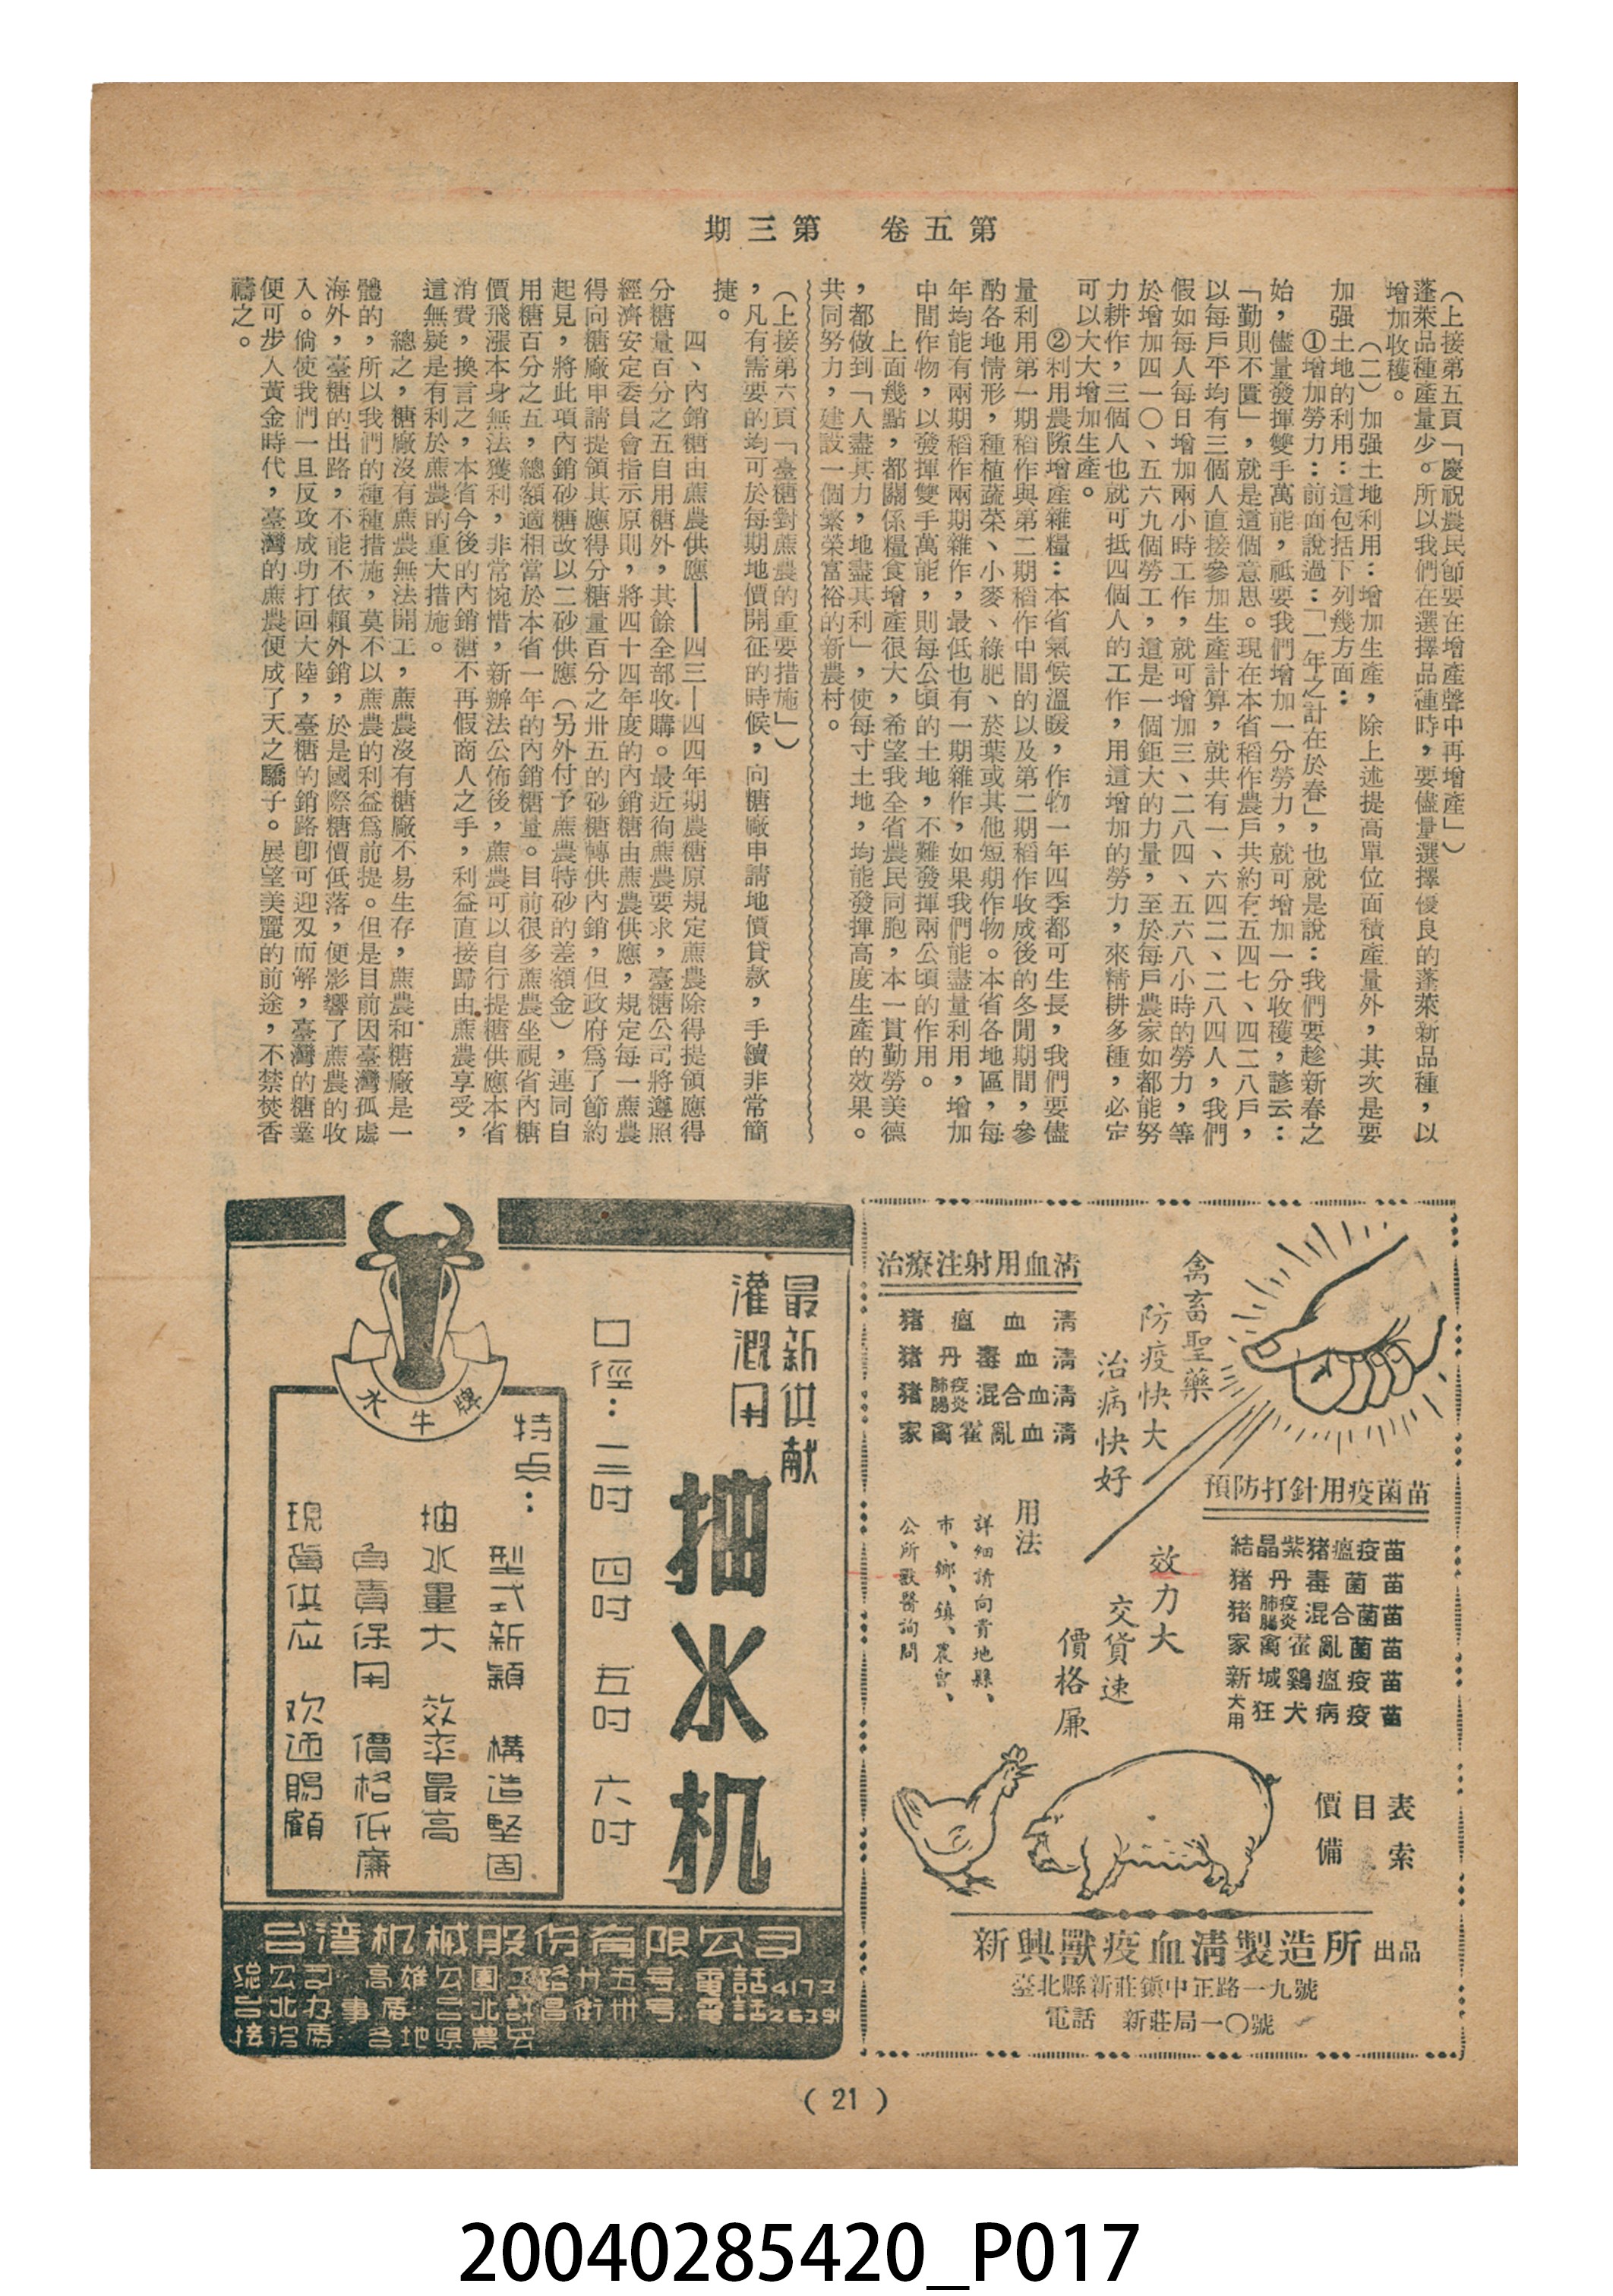 第五卷　第三期
（上接第五頁「慶祝農民節要在增產聲中再增產」）
蓬萊品種產量少。所以我們在選擇品種時，要儘量選擇優良的蓬萊新品種，以
增加收穫。
（二）加强土地利用：增加生產，除上述提高單位面積產量外，其次是要
加强土地的利用：這包括下列幾方面：
①增加勞力：前面說過：「一年之計在於春」，也就是說：我們要趁新春之
始，儘量發揮雙手萬能，祗要我們增加一分勞力，就可增加一分收穫，諺云：
「勤則不匱」，就是這個意思。現在本省稻作農戶共約有五四七、四二八戶，
以每戶平均有三個人直接參加生產計算，就共有一、六四二、二八四人，我們
假如每人每日增加兩小時工作，就可增加三、二八四、五六八小時的勞力，等
於增加四一〇、五六九個勞工，這是一個鉅大的力量，至於每戶農家如都能努
力耕作，三個人也就可抵四個人的工作，用這增加的勞力，來精耕多種，必定
可以大大增加生產。
②利用農隙增產雜糧：本省氣候溫暖，作物一年四季都可生長，我們要儘
量利用第一期稻作與第二期稻作中間的以及第二期稻作收成後的冬閒期間，參
酌各地情形，種植蔬菜、小麥、綠肥、菸葉或其他短期作物。本省各地區，每
年均能有兩期稻作兩期雜作，最低也有一期雜作，如果我們能盡量利用，增加
中間作物，以發揮雙手萬能，則每公頃的土地，不難發揮兩公頃的作用。
上面幾點，都關係糧食增產很大，希望我全省農民同胞，本一貫勤勞美德
，都做到「人盡其力，地盡其利」，使每寸土地，均能發揮高度生產的效果。
共同努力，建設一個繁榮富裕的新農村。
（上接第六頁「臺糖對蔗農的重要措施」）
，凡有需要的均可於每期地價開征的時候，向糖廠申請地價貸款，手續非常簡
捷。
四、內銷糖由蔗農供應——四三—四四年期農糖原規定蔗農除得提領應得
分糖量百分之五自用糖外，其餘全部收購。最近徇蔗農要求，臺糖公司將遵照
經濟安定委員會指示原則，將四十四年度的內銷糖由蔗農供應，規定每一蔗農
得向糖廠申請提領其應得分糖量百分之卅五的砂糖轉供內銷，但政府爲了節約
起見，將此項內銷砂糖改以二砂供應（另外付予蔗農特砂的差額金），連同自
用糖百分之五，總額適相當於本省一年的內銷糖量。目前很多蔗農坐視省內糖
價飛漲本身無法獲利，非常惋惜，新辦法公佈後，蔗農可以自行提糖供應本省
消費，換言之，本省今後的內銷糖不再假商人之手，利益直接歸由蔗農享受，
這無疑是有利於蔗農的重大措施。
總之，糖廠沒有蔗農無法開工，蔗農沒有糖廠不易生存，蔗農和糖廠是一
體的，所以我們的種種措施，莫不以蔗農的利益爲前提。但是目前因臺灣孤處
海外，臺糖的出路，不能不依賴外銷，於是國際糖價低落，便影響了蔗農的收
入。倘使我們一旦反攻成功打回大陸，臺糖的銷路卽可迎刃而解，臺灣的糖業
便可步入黃金時代，臺灣的蔗農便成了天之驕子。展望美麗的前途，不禁焚香
禱之。
禽畜聖藥
防疫快大
治病快好
預防打針用疫菌苗
結晶紫猪瘟疫苗
猪丹毒菌苗
猪肺疫腸炎混合菌苗
家禽霍亂菌苗
新城鷄瘟疫苗
犬用狂犬病疫苗
效力大
交貨速
價格廉
治療注射用血清
猪瘟血清
猪丹毒血清
猪肺疫腸炎混合血清
家禽霍亂血清
用法
詳細請向貴地縣、
市、鄉、鎮、農會、
公所獸醫詢問
價目表
備索
新興獸疫血清製造所 出品
臺北縣新莊鎮中正路一九號
電話　新莊局一〇號
最新供献
灌溉用
抽水机
口徑：三吋　四吋　五吋　六吋
水牛牌
特点：
型式新穎　構造堅固
抽水量大　效率最高
負責保用　價格低廉
現貨供应　欢迊賜顧
台湾机械股份有限公司
総公司　高雄公園二路卅五号　電話4177
台北办事處　台北許昌街卅号　電話26391
接洽處　各地県農会
( 21 )
20040285420_P017